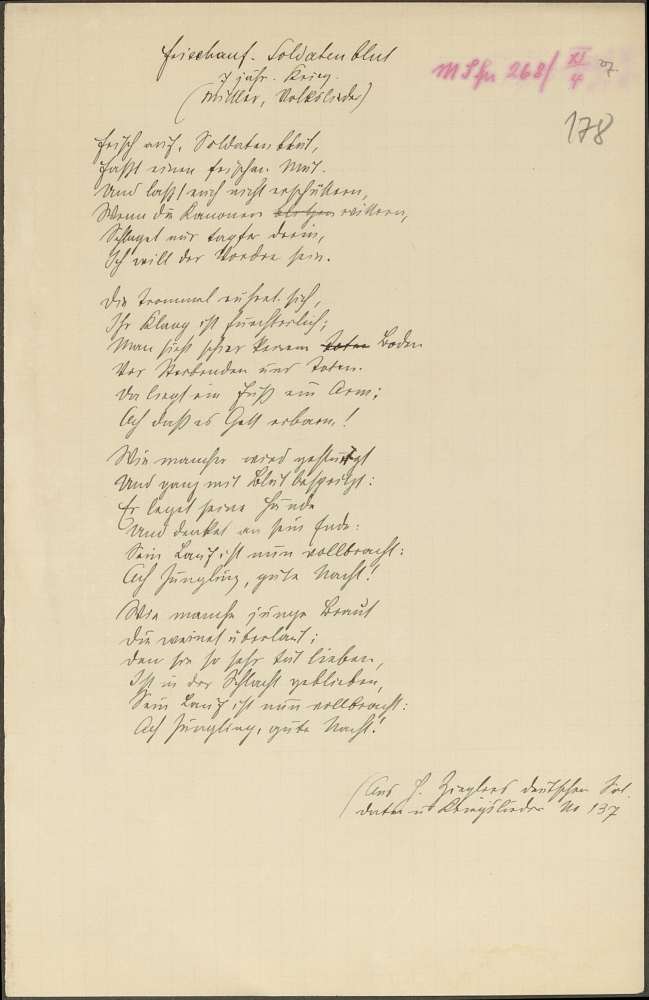 Frischauf. Soldatenblut
7 jähr. Krieg.
(Mittler, Volkslieder)
178
Frisch auf, Soldatenblut,
Faßt einen frischen Mut.
Und laßt euch nicht erschüttern,
Wenn die Kanonen wittern,
Schlaget nur tapfer drein,
Ich will der Vordre sein.
Die Trommel rühret sich,
Ihr Klang ist fürchterlich;
Man sieht schier keinen Boden
Vor Sterbenden und Toten.
Da liegt ein Fuß ein Arm;
Ach daß es Gott erbarm!
Wie mancher wird
Und ganz mit Blut bespritzt:
Er leget seine Hände
Und denket an sein Ende:
Sein Lauf ist nun vollbracht:
Ach Jüngling, gute Nacht!
Wie manche junge Braut
Die weinet überlaut;
Den sie so sehr tut lieben,
Ist in der Schlacht geblieben,
Sein Lauf ist nun vollbracht:
Ach Jüngling, gute Nacht!
(Aus Zieglers deutschen Sol.
daten u Kriegslieder No 137